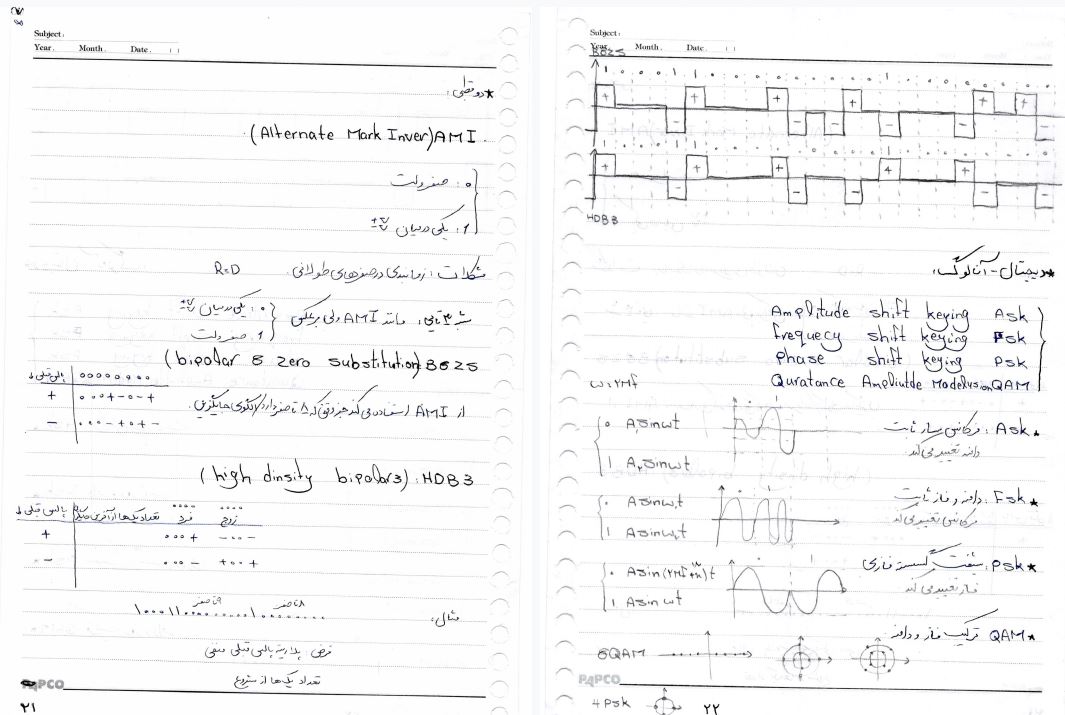 Subject:
Year. Month. Date. ( )
★ دوقطبی:
(Alternate Mark Inver) AMI.
0: صفر ولت
1: یکی درمیان ±V
مشکلات: زمانبندی در صفرهای طولانی. R=D
شبه سه‌تایی: مانند AMI ولی برعکس
0: یکی درمیان ±V
1: صفر ولت
(bipolar 8 zero substitution) B8ZS
پالس قبلی ↓ 00000000
+ 000+-0-+
- 000-+0+-
از AMI استفاده می کند جز وقتی که ۸ تا صفر دارد الگوی جایگزین.
(high dinsity bipolar3): HDB3
پالس قبلی ↓ تعداد یک ها از آخرین 0000 فرد 0000 زوج
+ 000+ -00-
- 000- +00+
مثال:
۹تا صفر ۸تا صفر
فرض پلاریته پالس قبلی منفی
تعداد یک ها از شروع
PAPCO
۲۱
Subject:
Year. Month. Date. ( )
B8ZS
HDB3
★ دیجیتال - آنالوگ:
Amplitude shift keying Ask
frequecy shift keying Fsk
phase shift keying Psk
Quratance Ampliutde Modelusion QAM
ω=2πf
★ Ask: فرکانس و فاز ثابت
دامنه تغییر می کند
0 A₁sinωt
1 A₂sinωt
★ Fsk: دامنه و فاز ثابت
فرکانس تغییر می کند
0 Asinω₁t
1 Asinω₂t
★ Psk: شیفت گسسته فازی
فاز تغییر می کند
0 Asin(2πf+π)t
1 Asinωt
★ QAM ترکیب فاز و دامنه
8QAM
PAPCO
4Psk
۲۲